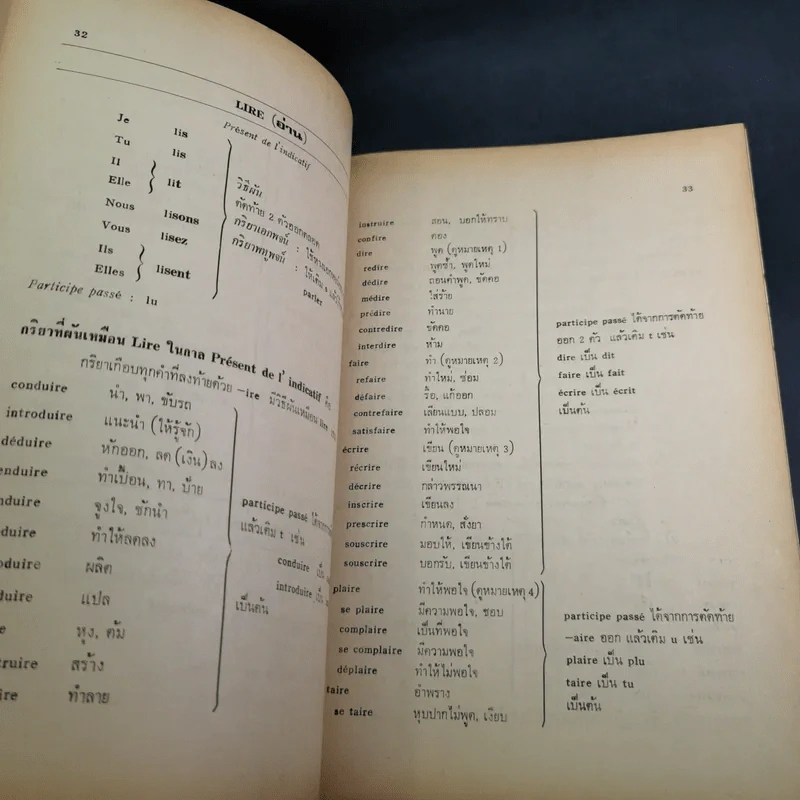 32
LIRE (อ่าน)
Présent de l'indicatif
Je lis
Tu lis
Il
Elle
lit
Nous lisons
Vous lisez
Ils
Elles
lisent
วิธีผัน
ตัดท้าย 2 ตัวออกตลอด
กริยาเอกพจน์ :
กริยาพหูพจน์ :
parler
Participe passé : lu
กริยาที่ผันเหมือน Lire ในกาล Présent de l'indicatif คือ
กริยาเกือบทุกคำที่ลงท้ายด้วย -ire มีวิธีผันเหมือน lire
conduire นำ, พา, ขับรถ
introduire แนะนำ (ให้รู้จัก)
déduire หักออก, ลด (เงิน) ลง
enduire ทำเปื้อน, ทา, ป้าย
nduire จูงใจ, ชักนำ
duire ทำให้ลดลง
oduire ผลิต
duire แปล
e หุง, ต้ม
truire สร้าง
ire ทำลาย
participe passé ได้จากการ
แล้วเติม t เช่น
conduire เป็น
introduire เป็น
เป็นต้น
33
instruire สอน, บอกให้ทราบ
confire ดอง
dire พูด (ดูหมายเหตุ 1)
redire พูดซ้ำ, พูดใหม่
dédire ถอนคำพูด, ขัดคอ
médire ใส่ร้าย
prédire ทำนาย
contredire ขัดคอ
interdire ห้าม
faire ทำ (ดูหมายเหตุ 2)
refaire ทำใหม่, ซ่อม
défaire รื้อ, แก้ออก
contrefaire เลียนแบบ, ปลอม
satisfaire ทำให้พอใจ
écrire เขียน (ดูหมายเหตุ 3)
récrire เขียนใหม่
décrire กล่าวพรรณนา
inscrire เขียนลง
prescrire กำหนด, สั่งยา
souscrire มอบให้, เขียนข้างใต้
souscrire บอกรับ, เขียนข้างใต้
participe passé ได้จากการตัดท้าย
ออก 2 ตัว แล้วเติม t เช่น
dire เป็น dit
faire เป็น fait
écrire เป็น écrit
เป็นต้น
plaire ทำให้พอใจ (ดูหมายเหตุ 4)
se plaire มีความพอใจ, ชอบ
complaire เป็นที่พอใจ
se complaire มีความพอใจ
déplaire ทำให้ไม่พอใจ
taire อำพราง
se taire หุบปากไม่พูด, เงียบ
participe passé ได้จากการตัดท้าย
-aire ออก แล้วเติม u เช่น
plaire เป็น plu
taire เป็น tu
เป็นต้น